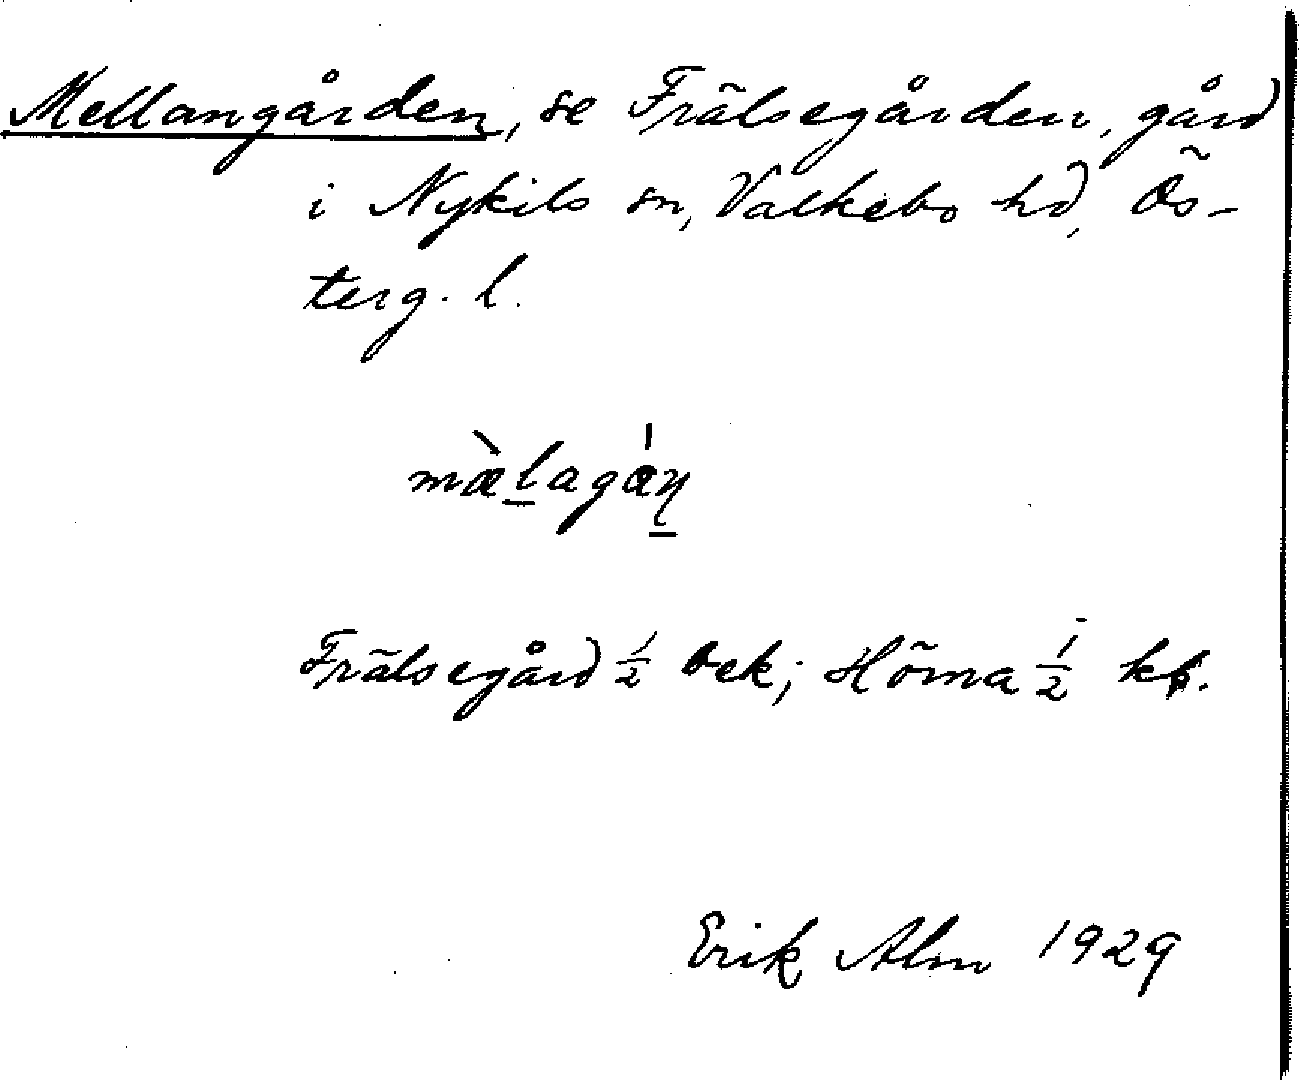 Mellangården, se Frälsegården, gård
i Nykils sn, Valkebo hd, Ös-
terg. l.
mæ̀lagáɳ
Frälsegård 1/2 bek; Höma 1/2 kf.
Erik Alm 1929